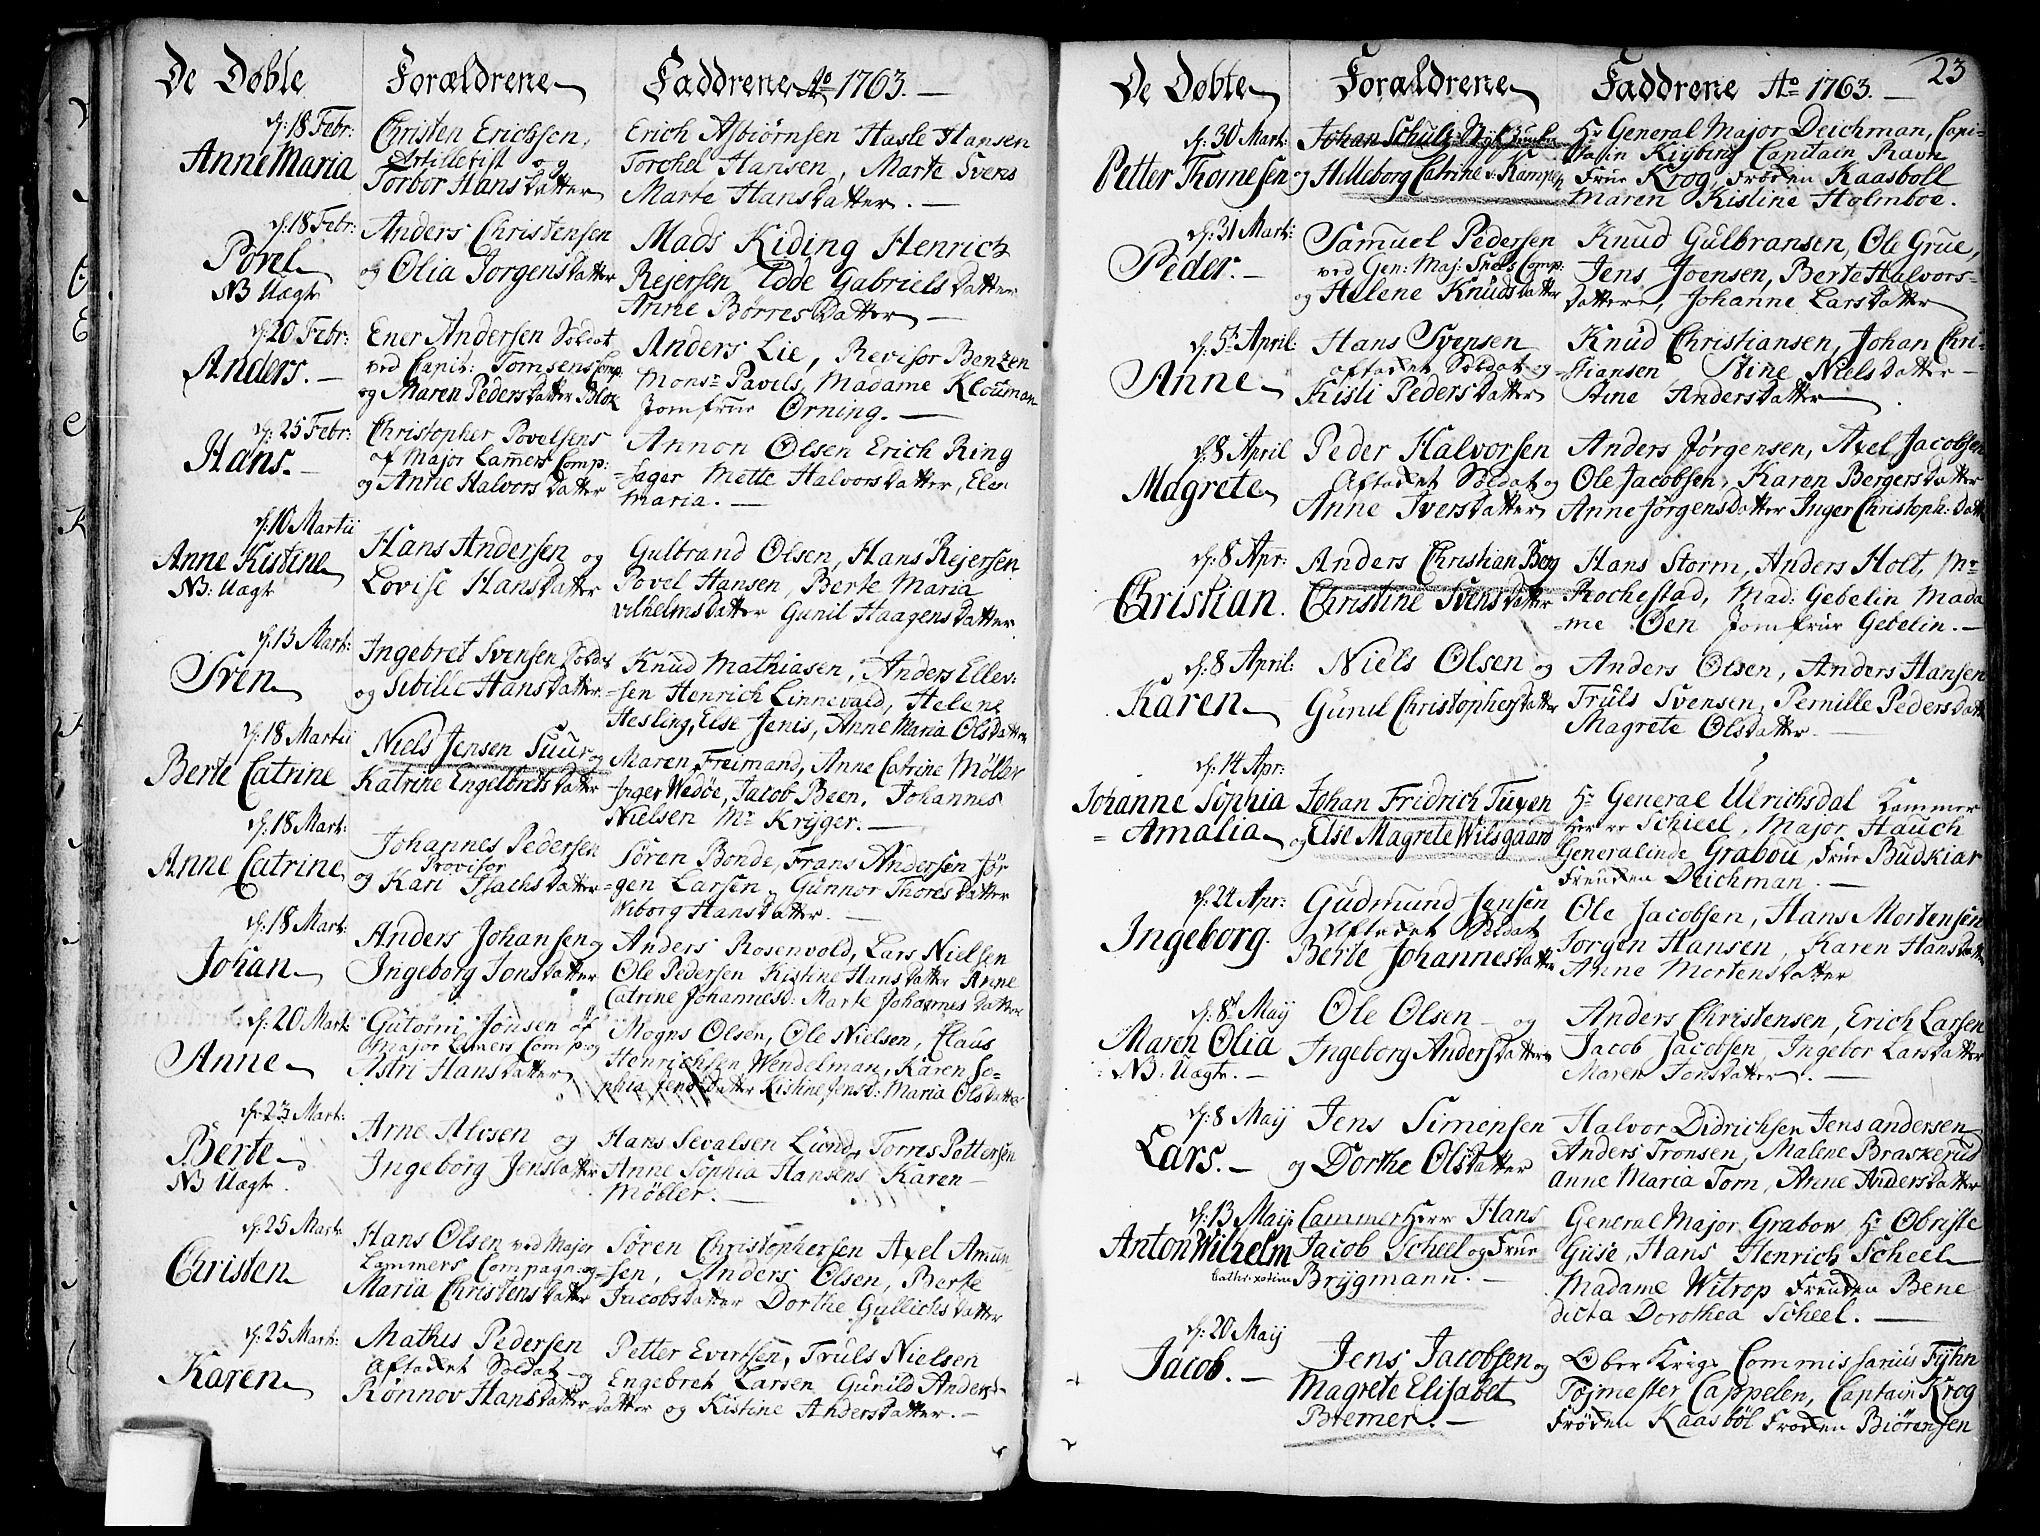 De Døbte Forældrene Faddrene Ao 1763. —
d: 18 Febr:
Anne Maria
Christen Erichsen,
Artillerist og
Torbor Hansdatter
Erich Asbiørnsen Hasle Hansen
Torchel Hansen, Marte Svens
Marte Hansdatter. —
d: 18 Febr:
Povel
NB Uagte
Anders Christensen
og Olia Jorgensdatter
Mads Kiding Henrich
Rejersen Edde Gabrielsdatter
Anne Børresdatter —
d: 20 Febr:
Anders. —
Ener Andersen Soldat
ved Capit: Tomsens Comp:
og Maren Pedersdatter Blok
Anders Lie, Revisor Bentzen
Monsr Pavels, Madame Klousman
Jomfrue Ørning. —
d: 25 Febr:
Hans. —
Christopher Povelsens
af Major Lamers Comp:
og Anne Halvorsdatter
Annon Olsen Erich Ring
-sager Mette Halvorsdatter, Elen
maria. —
d: 16 Martii
Anne Kistine
NB: Uagte
Hans Andersen og
Lovise Hansdatter
Gulbrand Olsen, Hans Rejersen
Povel Hansen, Berte Maria
Vilhelmsdatter Gunil Haagensdatter.
d: 13 Mart:
Sven
Ingebret Svensen Soldat
og Sibille Hansdatter.
Knud Mathiasen, Anders Ellev-
-sen Henrich Linnevald, Helene
Hesling, Else Jenis, Anne Maria Olsdatter
d: 18 Martii
Berte Catrine
Niels Jensen Suur og
Katrine Engelbretsdatter
Maren Freimand, Anne Catrine Møller
Inger Wedøe, Jacob Been, Johannes
Nielsen Mr Kryger. —
d: 18 Mart:
Anne Catrine
Johannes Pedersen
Provisor
og Kari Isachsdatter
Søren Bonde, Frans Andersen Jør
-gen Larsen, Gunnor Thoresdatter
Wiborg Hansdatter. —
d: 18 Mart:
Johan
Anders Johansen og
Ingeborg Jonsdatter
Anders Rosenvold, Lars Nielsen
Ole Pedersen Kistine Hansdatter Anne
Catrine Johannesd: Marte Johannesdatter
d: 20 Mart:
Anne
Gutorm Jonsen af
Major Lamers Comp: og
Astri Hansdatter
Mogns Olsen, Ole Nielsen, Claus
Henrichsen Wendelman, Karen So-
phia Jensdatter Kistine Jensd: Maria Olsdatter
d: 23 Mart:
Berte
NB Uagte
Arne Alvsen og
Ingeborg Jensdatter
Hans Sevalsen Lund, Torres Pettersen
Anne Sophia Hansens Karen
Møbler. —
d: 25 Mart:
Christen
Hans Olsen ved Major
Lammers Compagn: og
Maria Christensdatter
Søren Christophersen Axel Amun
-sen, Anders Olsen, Berte
Jacobsdatter Dorthe Gullichsdatter
d: 25 Mart:
Karen
Mathis Pedersen
Aftadet Soldat og
Rønnov Hansdatter
Petter Evertsen, Truls Nielsen
Engebret Larsen Gunild Anders-
datter og Kistine Andersdatter. —
23
De Døbte Forældrene Faddrene Ao 1763. —
d: 30 Mart:
Petter Thomesen
Johan Schultz
og Hilleborg Catrine v: Kampen
Hr General Major Deichman, Capi-
tain Kyberg Capitain Ravn
Frue Krog, Frøden Kaasboll
Maren Kistine Holmboe.
d: 31 Mart:
Peder. —
Samuel Pedersen
ved Gen: Maj: Comp:
og Helene Knudsdatter
Knud Gulbransen, Ole Grue,
Jens Joensen, Berte Halvors-
datter, Johanne Larsdatter
d: 5t April:
Anne
Hans Svensen
aftadet Soldat og
Kisti Pedersdatter
Knud Christiansen, Johan Chri-
-stiansen Stine Nielsdatter —
Stine Andersdatter
d: 8 April
Magrete
Peder Halvorsen
Aftadet Soldat og
Anne Iversdatter
Anders Jørgensen, Axel Jacobsen
Ole Jacobsen, Karen Bergersdatter
Anne Jørgensdatter Inger Christoph: datt
d: 8 Apr:
Christian.
Anders Christian Berg
Christine Svensdatter
Hans Storm, Anders Holt, Mr
Rochestad, Mad: Gebelin Mada
-me Øen Jomfrue Gebelin. —
d: 8 April:
Karen
Niels Olsen og
Gunil Christophersdatter
Anders Olsen, Anders Hansen
Truls Svensen, Pernille Pedersdatt
Magrete Olsdatter. —
d: 14 Apr:
Johanne Sophia
Amalia
Johan Fridrich Tuxen
og Else Magrete Wilsgaard
Hr General Ulrichsdal Kammer
Herre Schieel, Major Hauch
Generalinde Grabou, Frue Budkiar
Freuden Deichman. —
d: 22 Apr:
Ingeborg.
Gudmund Jensen
Aftadet Soldat
Berte Johannesdatter
Ole Jacobsen, Hans Mortensen
Jorgen Hansen, Karen Hansdatter
Anne Mortensdatter
d: 8t Maij
Maren Olia
NB: Uagte. —
Ole Olsen — og
Ingeborg Andersdatter
Anders Christensen, Erich Larsen
Jacob Jacobsen, Ingebor Larsdatter
Maren Jonsdatter. —
d: 8 Maij
Lars. —
Jens Simensen
og Dorthe Olsdatter
Halvor Didrichsen Jens andersen
Anders Tronsen, Malene Braskerud
Anne Maria Torn, Anne Andersdatter
d: 13 Maij:
Anton Wilhelm
Cammer Herr Hans
Jacob Scheel og Frue
Brygmann. —
General Major Grabow Hr Obriste
Guise, Hans Henrich Scheel
Madame Witrop Freuden Bene
dicta Dorothea Scheel. —
d: 20 Maij
Jacob. —
Jens Jacobsen og
Magrete Elisabet
Bremer. —
Ober Krigs Commissarius Fyhn
Tøjmester Cappelen, Captain Krog
Frøden Kaasbøl Frøden Biørensen